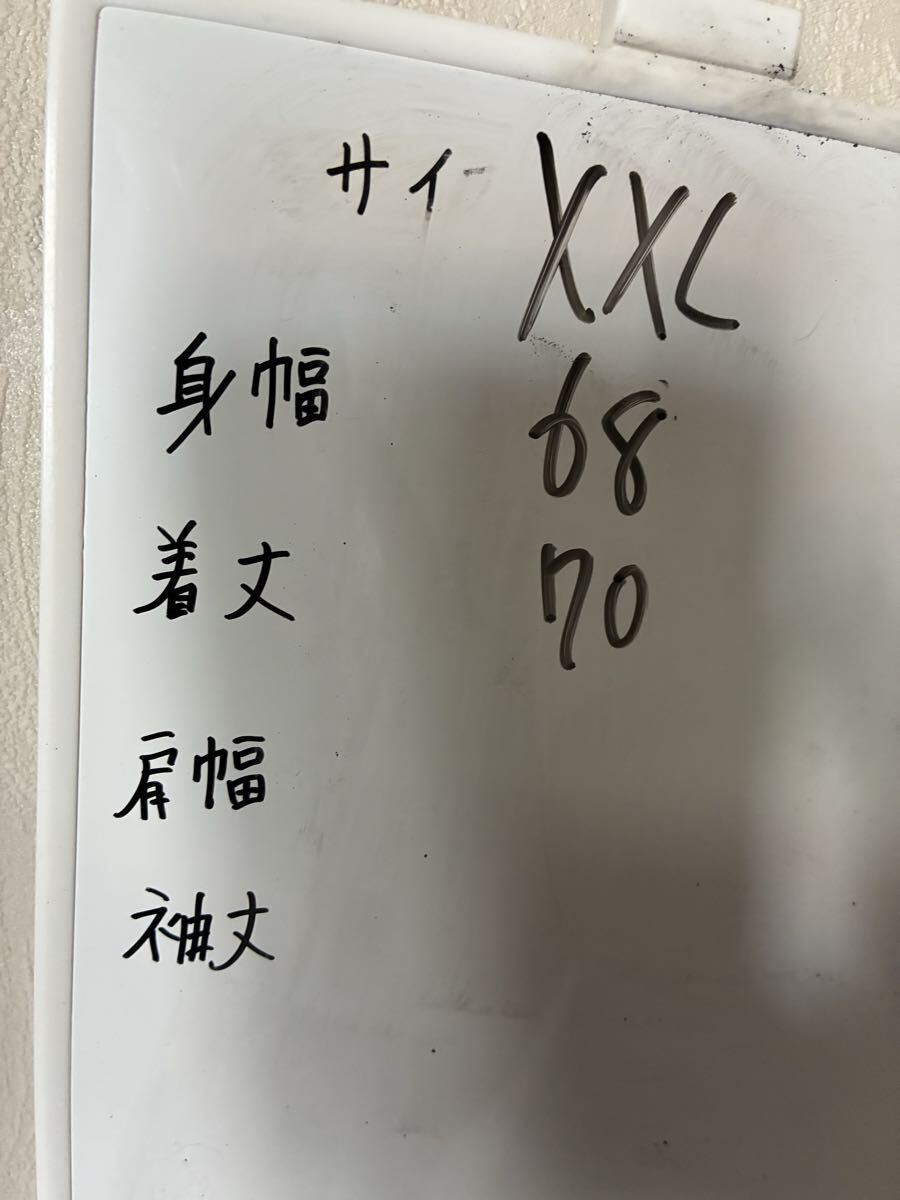 サイ XXL
身幅 68
着丈 70
肩幅
袖丈